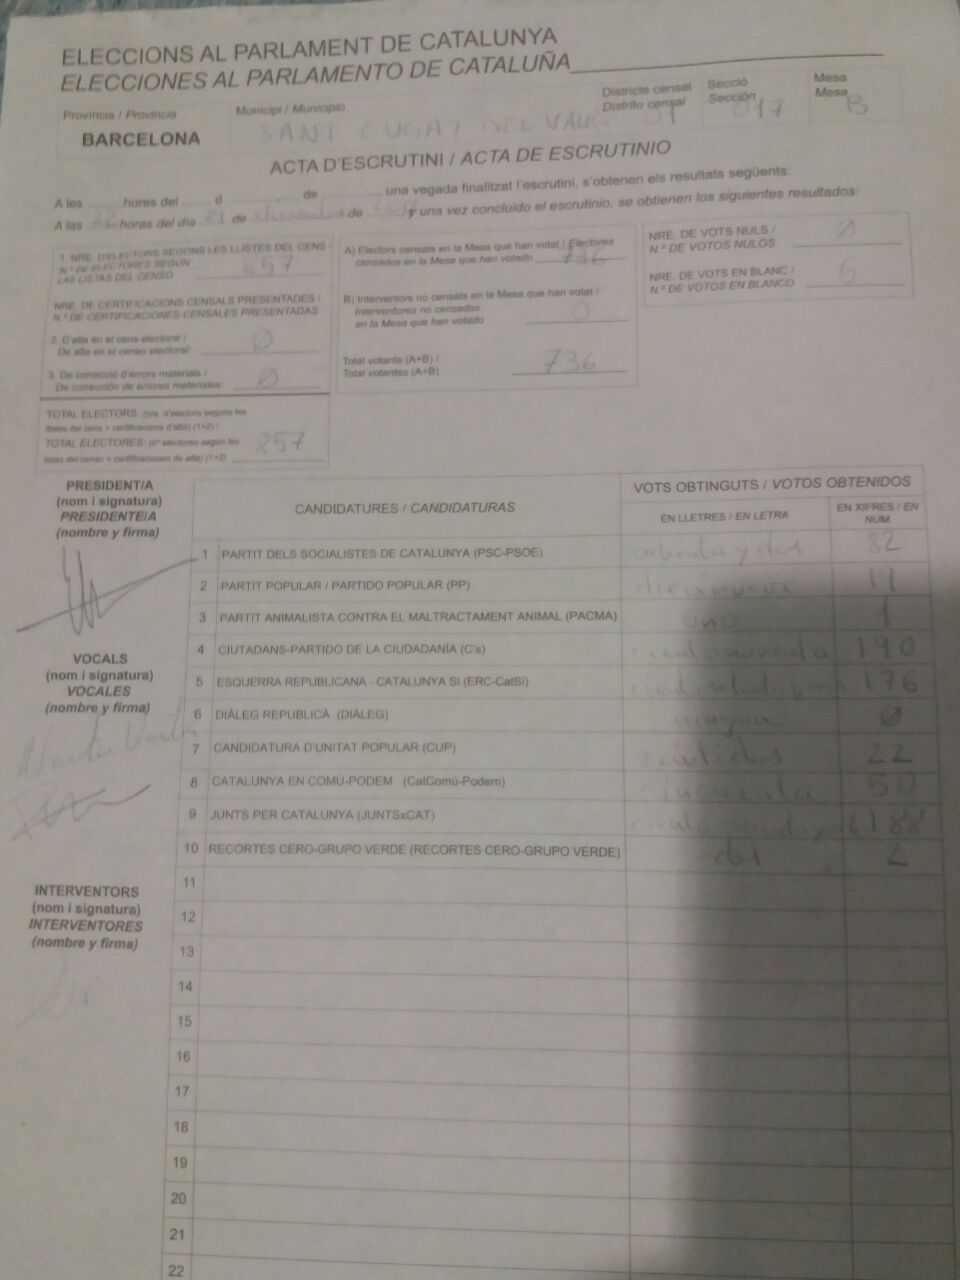 ELECCIONS AL PARLAMENT DE CATALUNYA
ELECCIONES AL PARLAMENTO DE CATALUÑA
Provincia / Provincia
BARCELONA
Municipi / Municipio
SANT CUGAT DEL VALLES
Districte censal
Distrito censal
01
Secció
Sección
017
Mesa
Mesa
B
ACTA D'ESCRUTINI / ACTA DE ESCRUTINIO
A les ........ hores del ...... d ............ de ............, una vegada finalitzat l'escrutini, s'obtenen els resultats següents:
A las horas del día 21 de de y una vez concluido el escrutinio, se obtienen los siguientes resultados:
1. NRE. D'ELECTORS SEGONS LES LLISTES DEL CENS /
N.º DE ELECTORES SEGÚN
LAS LISTAS DEL CENSO 857
NRE. DE CERTIFICACIONS CENSALS PRESENTADES /
N.º DE CERTIFICACIONES CENSALES PRESENTADAS
2. D'alta en el cens electoral /
De alta en el censo electoral: Ø
3. De correcció d'errors materials /
De corrección de errores materiales: Ø
TOTAL ELECTORS: (nre. d'electors segons les
llistes del cens + certificacions d'alta) (1+2) /
TOTAL ELECTORES: (nº electores según las
listas del censo + certificaciones de alta) (1+2) 857
A) Electors censats en la Mesa que han votat / Electores
censados en la Mesa que han votado 736
B) Interventors no censats en la Mesa que han votat /
Interventores no censados
en la Mesa que han votado 0
Total votants (A+B) /
Total votantes (A+B) 736
NRE. DE VOTS NULS /
N.º DE VOTOS NULOS 0
NRE. DE VOTS EN BLANC /
N.º DE VOTOS EN BLANCO 6
PRESIDENT/A
(nom i signatura)
PRESIDENTE/A
(nombre y firma)
VOCALS
(nom i signatura)
VOCALES
(nombre y firma)
INTERVENTORS
(nom i signatura)
INTERVENTORES
(nombre y firma)
CANDIDATURES / CANDIDATURAS
VOTS OBTINGUTS / VOTOS OBTENIDOS
EN LLETRES / EN LETRA
EN XIFRES / EN
NÚM.
1 PARTIT DELS SOCIALISTES DE CATALUNYA (PSC-PSOE) ochenta y dos 82
2 PARTIT POPULAR / PARTIDO POPULAR (PP)
3 PARTIT ANIMALISTA CONTRA EL MALTRACTAMENT ANIMAL (PACMA) uno 1
4 CIUTADANS-PARTIDO DE LA CIUDADANÍA (C's) ciento noventa 190
5 ESQUERRA REPUBLICANA - CATALUNYA SÍ (ERC-CatSí) 176
6 DIÀLEG REPUBLICÀ (DIÀLEG) Ø
7 CANDIDATURA D'UNITAT POPULAR (CUP) veintidos 22
8 CATALUNYA EN COMÚ-PODEM (CatComú-Podem) cincuenta 50
9 JUNTS PER CATALUNYA (JUNTSxCAT) 188
10 RECORTES CERO-GRUPO VERDE (RECORTES CERO-GRUPO VERDE) dos 2
11
12
13
14
15
16
17
18
19
20
21
22